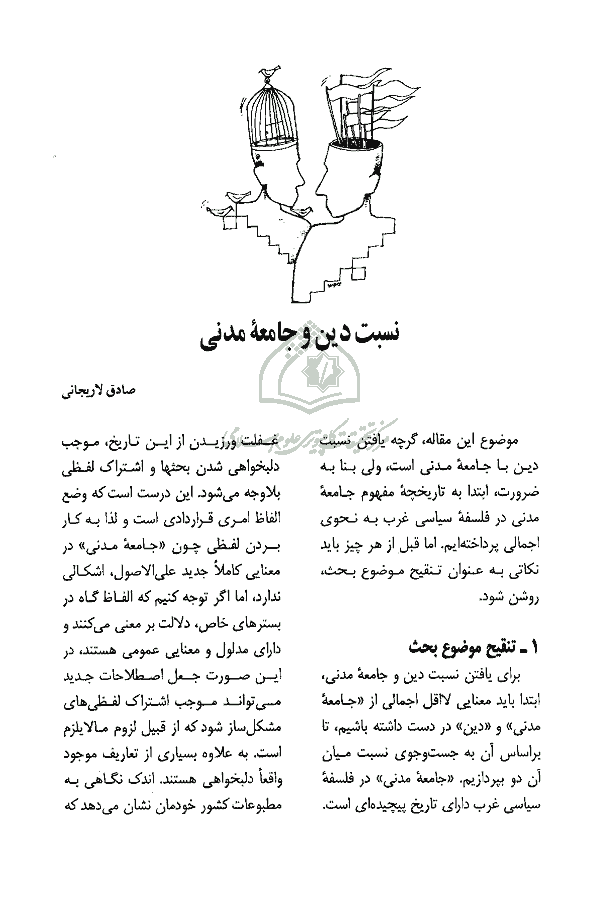 نسبت دین و جامعهٔ مدنی
صادق لاریجانی
موضوع این مقاله، گرچه یافتن نسبت
دین با جامعهٔ مدنی است، ولی بنا به
ضرورت، ابتدا به تاریخچهٔ مفهوم جامعهٔ
مدنی در فلسفهٔ سیاسی غرب به نحوی
اجمالی پرداخته‌ایم. اما قبل از هر چیز باید
نکاتی به عنوان تنقیح موضوع بحث،
روشن شود.
۱ ـ تنقیح موضوع بحث
برای یافتن نسبت دین و جامعهٔ مدنی،
ابتدا باید معنایی لااقل اجمالی از «جامعهٔ
مدنی» و «دین» در دست داشته باشیم، تا
براساس آن به جست‌وجوی نسبت میان
آن دو بپردازیم. «جامعهٔ مدنی» در فلسفهٔ
سیاسی غرب دارای تاریخ پیچیده‌ای است.
غفلت ورزیدن از این تاریخ، موجب
دلبخواهی شدن بحثها و اشتراک لفظی
بلاوجه می‌شود. این درست است که وضع
الفاظ امری قراردادی است و لذا به کار
بردن لفظی چون «جامعهٔ مدنی» در
معنایی کاملاً جدید علی‌الاصول، اشکالی
ندارد، اما اگر توجه کنیم که الفاظ گاه در
بسترهای خاص، دلالت بر معنی می‌کنند و
دارای مدلول و معنایی عمومی هستند، در
این صورت جعل اصطلاحات جدید
می‌تواند موجب اشتراک لفظی‌های
مشکل‌ساز شود که از قبیل لزوم مالایلزم
است. به علاوه بسیاری از تعاریف موجود
واقعاً دلبخواهی هستند. اندک نگاهی به
مطبوعات کشور خودمان نشان می‌دهد که